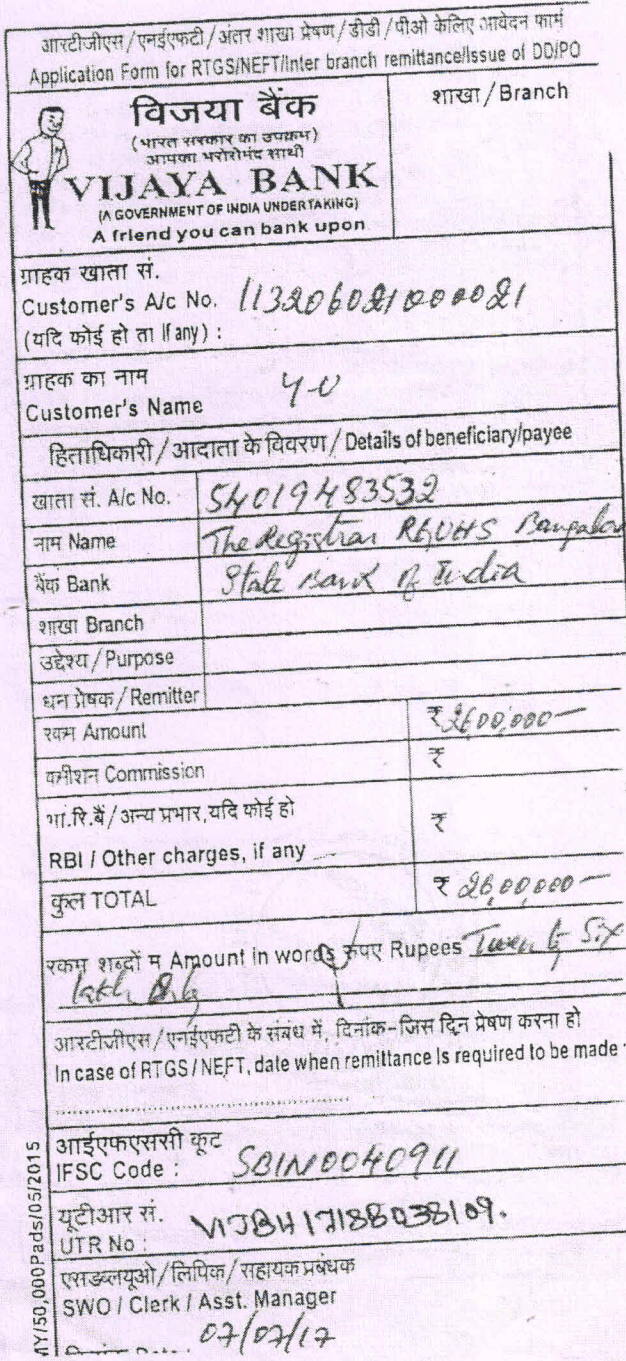 आरटीजीएस/एनईएफटी/अंतर शाखा प्रेषण/डीडी/पीओ केलिए आवेदन फार्म
Application Form for RTGS/NEFT/Inter branch remittance/Issue of DD/PO
विजया बैंक
(भारत सरकार का उपक्रम)
आपका भरोसेमंद साथी
VIJAYA BANK
(A GOVERNMENT OF INDIA UNDERTAKING)
A friend you can bank upon
शाखा/Branch
ग्राहक खाता सं.
Customer's A/c No. 113206021000021
(यदि कोई हो ता if any) :
ग्राहक का नाम
Customer's Name
हिताधिकारी/आदाता के विवरण/Details of beneficiary/payee
खाता सं. A/c No. 54019483532
नाम Name The Registrar RGUHS Bangalore
बैंक Bank State Bank of India
शाखा Branch
उद्देश्य/Purpose
धन प्रेषक/Remitter
रकम Amount ₹ 26,00,000
कमीशन Commission ₹
भा.रि.बैं/अन्य प्रभार,यदि कोई हो ₹
RBI / Other charges, if any
कुल TOTAL ₹ 26,00,000
रकम शब्दों म Amount in words रूपए Rupees Twenty Six
lakh Only
आरटीजीएस/एनईएफटी के संबंध में, दिनांक-जिस दिन प्रेषण करना हो
In case of RTGS/NEFT, date when remittance is required to be made
आईएफएससी कूट
IFSC Code : SBIN0040911
यूटीआर सं.
UTR No : VIJBH17188038109.
एसडब्लयूओ/लिपिक/सहायक प्रबंधक
SWO / Clerk / Asst. Manager
07/07/17
/50,000Pads/05/2015